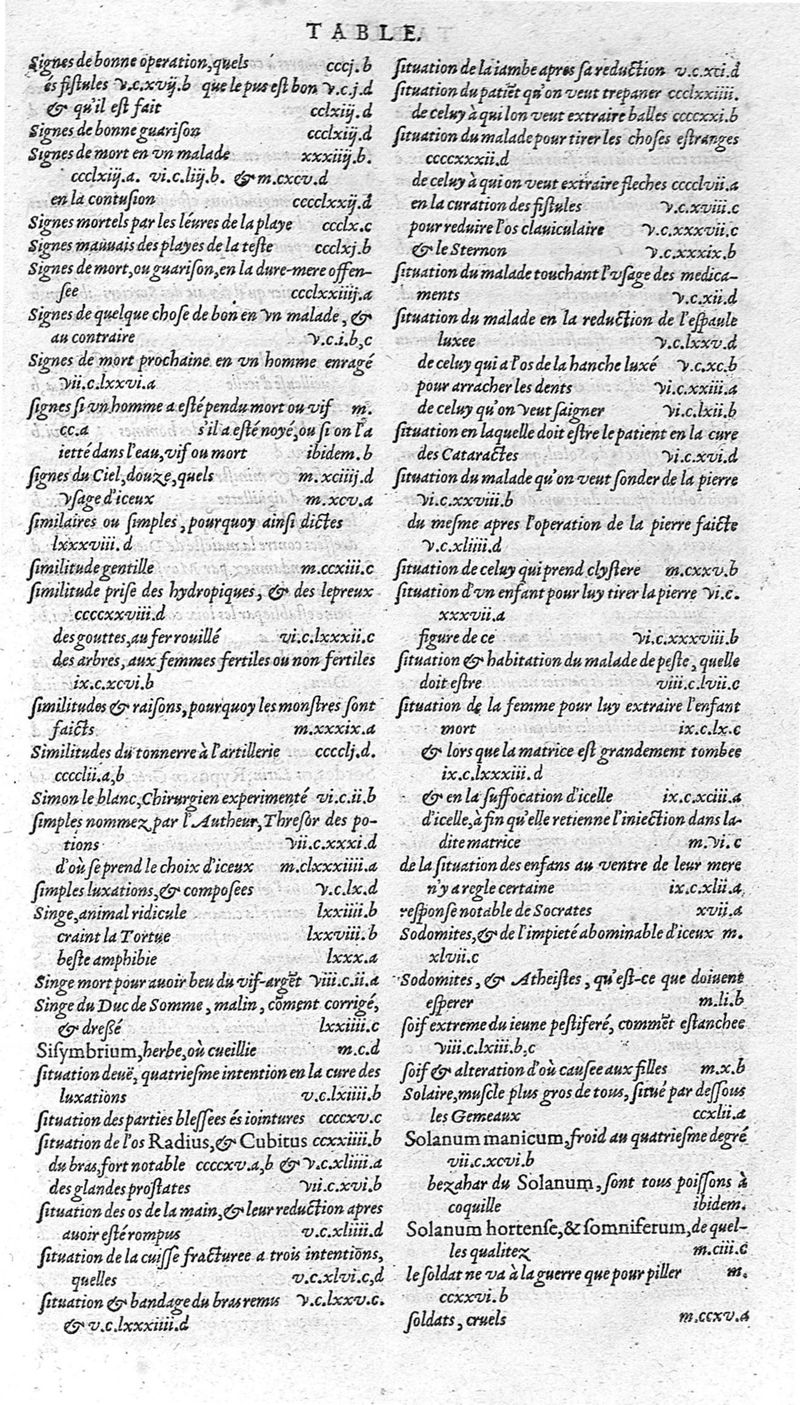 TABLE.
Signes de bonne operation, quels cccj.b
és fistules v.c.xvij.b que le pus est bon v.c.j.d
& qu'il est fait cclxiij.d
Signes de bonne guarison ccclxij.d
Signes de mort en vn malade xxxiiij.b.
ccclxij.a. vi.c.liij.b. & m.cxcv.d
en la contusion cccclxxij.d
Signes mortels par les léures de la playe ccclx.c
Signes mauuais des playes de la teste ccclxj.b
Signes de mort, ou guarison, en la dure-mere offen-
see ccclxxiiij.a
Signes de quelque chose de bon en vn malade, &
au contraire v.c.i.b,c
Signes de mort prochaine en vn homme enragé
vii.c.lxxvi.a
signes si vn homme a esté pendu mort ou vif m.
cc.a s'il a esté noyé, ou si on l'a
ietté dans l'eau, vif ou mort ibidem.b
signes du Ciel, douze, quels m.xciiij.d
vsage d'iceux m.xcv.a
similaires ou simples, pourquoy ainsi dictes
lxxxviii.d
similitude gentille m.ccxiii.c
similitude prise des hydropiques, & des lepreux
ccccxxviii.d
des gouttes, au fer rouillé vi.c.lxxxii.c
des arbres, aux femmes fertiles ou non fertiles
ix.c.xcvi.b
similitudes & raisons, pourquoy les monstres sont
faicts m.xxxix.a
Similitudes du tonnerre à l'artillerie cccclj.d.
cccclii.a,b
Simon le blanc, Chirurgien experimenté vi.c.ii.b
simples nommez par l'Autheur, Thresor des po-
tions vii.c.xxxi.d
d'où se prend le choix d'iceux m.clxxxiiii.a
simples luxations, & composees v.c.lx.d
Singe, animal ridicule lxxiiii.b
craint la Tortue lxxviii.b
beste amphibie lxxx.a
Singe mort pour auoir beu du vif-argēt viii.c.ii.a
Singe du Duc de Somme, malin, cōment corrigé,
& dressé lxxiiii.c
Sisymbrium, herbe, où cueillie m.c.d
situation deuë, quatriesme intention en la cure des
luxations v.c.lxiiii.b
situation des parties blessees és iointures ccccxv.c
situation de l'os Radius, & Cubitus ccxxiiii.b
du bras, fort notable ccccxv.a,b & v.c.xliiii.a
des glandes prostates vii.c.xvi.b
situation des os de la main, & leur reduction apres
auoir esté rompus v.c.xliiii.d
situation de la cuisse fracturee a trois intentions,
quelles v.c.xlvi.c,d
situation & bandage du bras remis v.c.lxxv.c.
& v.c.lxxxiiii.d
situation de la iambe apres sa reduction v.c.xli.d
situation du patiēt qu'on veut trepaner ccclxxiiii.
de celuy à qui lon veut extraire balles ccccxxi.b
situation du malade pour tirer les choses estranges
ccccxxxii.d
de celuy à qui on veut extraire fleches cccclvii.a
en la curation des fistules v.c.xviii.c
pour reduire l'os clauiculaire v.c.xxxvii.c
& le Sternon v.c.xxxix.b
situation du malade touchant l'vsage des medica-
ments v.c.xii.d
situation du malade en la reduction de l'espaule
luxee v.c.lxxv.d
de celuy qui a l'os de la hanche luxé v.c.xc.b
pour arracher les dents vi.c.xxiii.a
de celuy qu'on veut saigner vi.c.lxii.b
situation en laquelle doit estre le patient en la cure
des Cataractes vi.c.xvi.d
situation du malade qu'on veut sonder de la pierre
vi.c.xxviii.b
du mesme apres l'operation de la pierre faicte
v.c.xliiii.d
situation de celuy qui prend clystere m.cxxv.b
situation d'vn enfant pour luy tirer la pierre vi.c.
xxxvii.a
figure de ce vi.c.xxxviii.b
situation & habitation du malade de peste, quelle
doit estre viii.c.lvii.c
situation de la femme pour luy extraire l'enfant
mort ix.c.lx.c
& lors que la matrice est grandement tombee
ix.c.lxxxiii.d
& en la suffocation d'icelle ix.c.xciii.a
d'icelle, à fin qu'elle retienne l'iniection dans la-
dite matrice m.vi.c
de la situation des enfans au ventre de leur mere
n'y a regle certaine ix.c.xlii.a
response notable de Socrates xvii.a
Sodomites, & de l'impieté abominable d'iceux m.
xlvii.c
Sodomites, & Atheistes, qu'est-ce que doiuent
esperer m.li.b
soif extreme du ieune pestiferé, commēt estanchee
viii.c.lxiii.b,c
soif & alteration d'où causee aux filles m.x.b
Solaire, muscle plus gros de tous, situé par dessous
les Gemeaux ccxlii.a
Solanum manicum, froid au quatriesme degré
vii.c.xcvi.b
bezahar du Solanum, sont tous poissons à
coquille ibidem.
Solanum hortense, & somniferum, de quel-
les qualitez m.ciii.c
le soldat ne va à la guerre que pour piller m.
ccxxvi.b
soldats, cruels m.ccxv.a